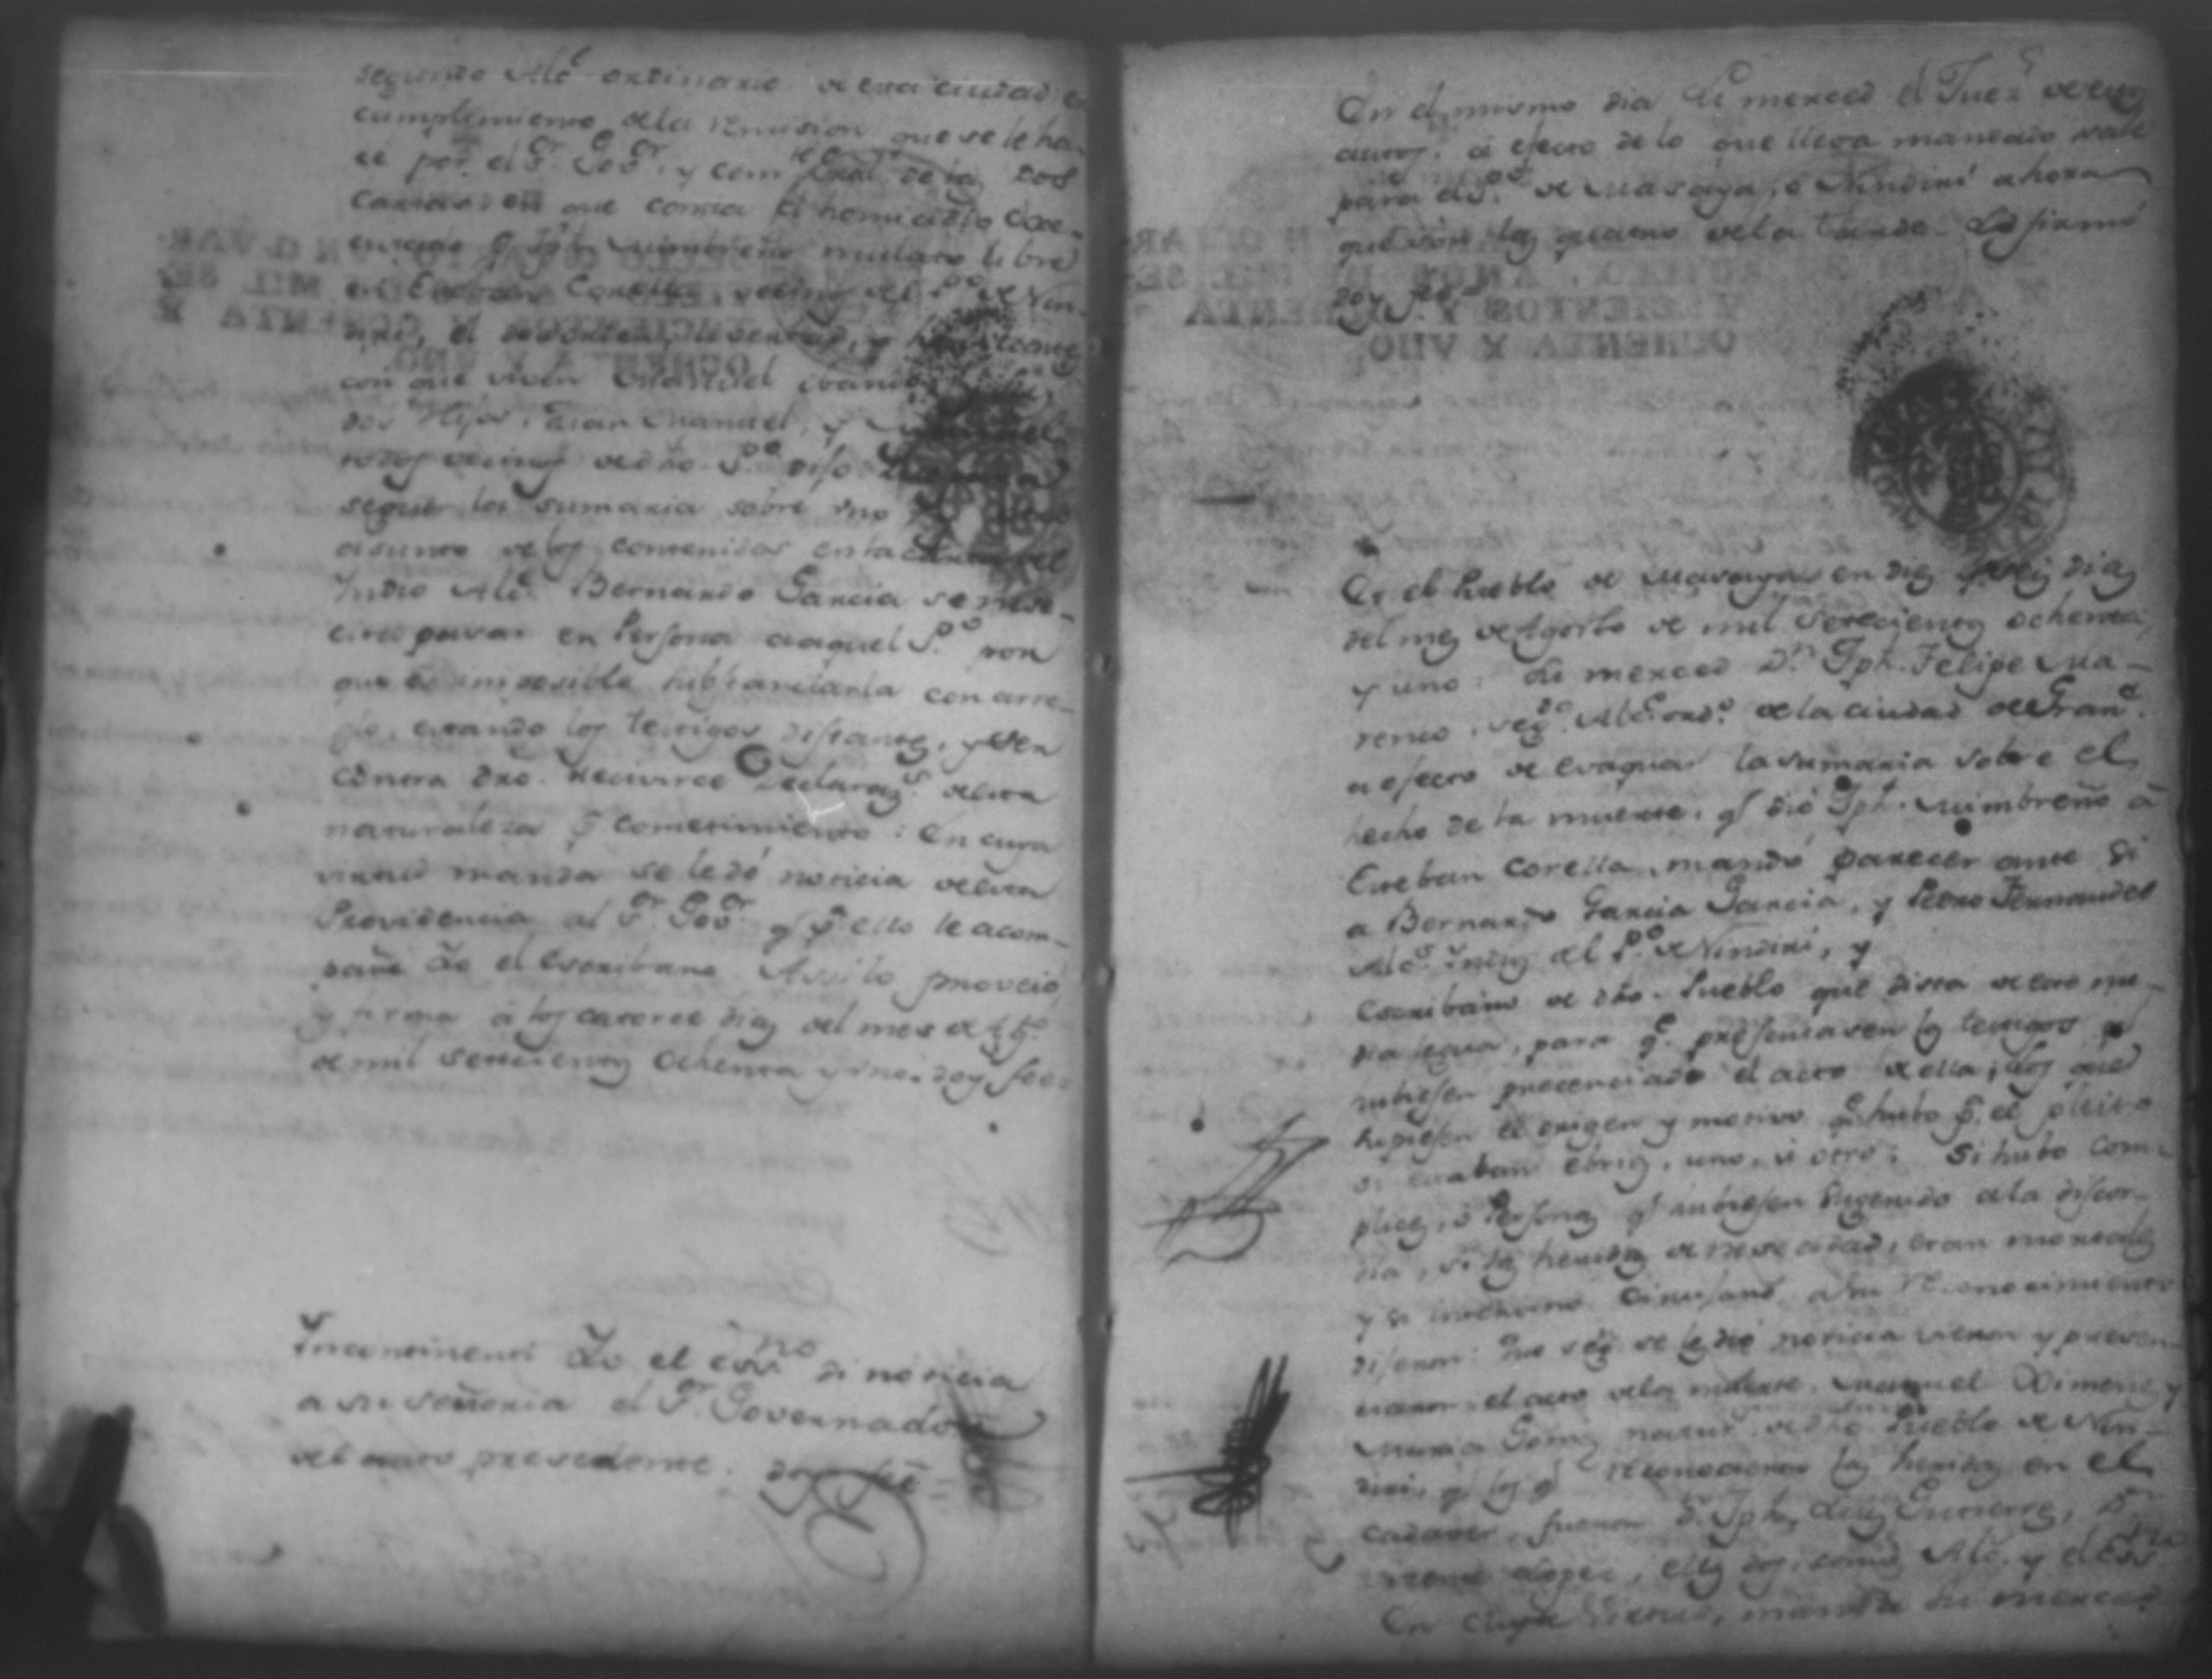 segundo Alc.e ordinario de esta ciudad en
cumplimiento de la remision que se le ha-
ce por el S.or Gov.or, y Com.te Gral. de las dos
cartas en que consta el homicidio exe-
cutado p.r Jph. Mimbreño mulato libre
en Esteban Corella, vecino del P.o de Nin-
diri, el desorden, livertad, y
con que viven Manuel
dos Hijos, Juan Manuel, y
todos vecinos de dho. P.o dijo
seguir la sumaria sobre uno
asunto de los contenidos en la carta del
Yndio Alc.e Bernardo Garcia se nese-
cita pasar en Persona a aquel P.o por
que es imposible substanciarla con arre-
glo, estando los testigos distantes, y ser
contra dro. recivirse Declaraz.s de esta
naturaleza p.r cometimiento: En cuya
virtud manda se le dé noticia de esta
Providencia al S.or Gov.or q.e p.a ello le acom-
pañe Yo el Escribano. Assi lo proveió,
y firma á los catorce dias del mes de Ag.to
de mil setecientos ochenta y uno. doy fee=
Yncontinenti Yo el ess.no di noticia
a su señoria el S.or Governador
del auto precedente. doy feé=
En el mismo dia su merced el Juez de estos
autos, á efecto de lo que lleva mandado sale
para el P.o de Masaya, o Nindiri ahora
que són las quatro de la tarde. Lo firmó
doy feé.
En el Pueblo de Masaya en diez y seis dias
del mes de Agosto de mil setecientos ochenta,
y uno: su merced D.n Jph. Felipe Ma-
renco, seg.do Alc.e ord.o de la ciudad de Gran.a
a efecto de evaquar la sumaria sobre el
hecho de la muerte, q.e dió Jph. Mimbreño á
Esteban Corella, mandó parecer ante si
a Bernardo Garcia Garcia, y Pedro Fernandes
Alc.s Yndios del P.o de Nindiri, y
Escribano de dho. Pueblo que dista de este me-
dia legua, para q.e presentasen los testigos q.e
hubiesen precenciado el acto de ella; los que
supiesen el origen y motivo q.e hubo p.a el pleito
si estaban ebrios, uno, ú otro: Si hubo com-
plices, ó Personas q.e hubiesen sugerido a la discor-
dia, si las heridas de nesecidad, eran mortales
y si intervino Cirujano a su reconocimiento
dijeron: Que seg.n se les dió noticia vieron y presen-
ciaron el acto de la muerte, Manuel Ximenes, y
Maria Gomes natur.s de dho. Pueblo de Nin-
diri, y los q.e reconocieron las heridas en el
cadaver, fueron D.n Jph. Luis Gutierres, D.n
Lopez, ellos dos, como Alc.s y el Ess.no
En cuya virtud, manda su merced